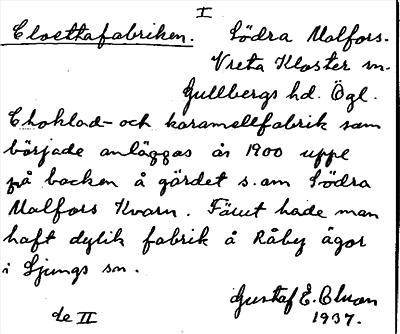 I
Cloettafabriken. Södra Malfors.
Vreta Kloster sn.
Gullbergs hd. Ögl.
Choklad- och karamellfabrik som
började anläggas år 1900 uppe
på backen å gärdet s. om Södra
Malfors Kvarn. Förut hade man
haft dylik fabrik å Råby ägor
i Ljungs sn.
Gustaf E.
de II 1937.